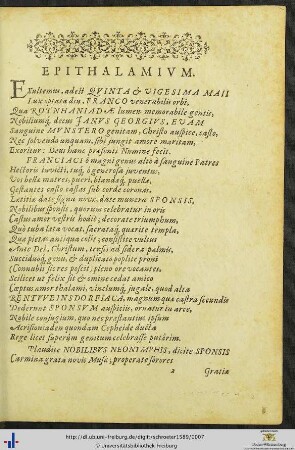 EPITHALAMIVM.
EXultemus, adest QVINTA & VIGESIMA MAII
Lux optata diu, FRANCO venerabilis orbi,
Qua ROTNHANIADAE lumen memorabile gentis,
Nobiliumq́, decus JANVS GEORGIVS, EVAM
Sanguine MVNSTERO genitam, Christo auspice, casto,
Nec solvendo unquam, sibi jungit amore maritam,
Exoritur: Bene hanc praesenti Numine fecit.
FRANCIACI ô magni genus altô à sanguine Patres
Hectoris invicti, tuq́, ô generosa juventus,
Vos bella matres, pueri, blandaq́, puella,
Gestantes casto castas sub corde coronas,
Exitio date signa novo, date munera SPONSIS,
Nobilibus sponsis, quorum celebratur in oris
Castus amor vestris hodiè; decorate triumphum,
Quò tuba laeta vocat, sacrataq́, quarite templa,
Qua pietas antiqua colit; consistite vultus
Ante Dei, Christum, tensis ad sidera palmis,
Succiduoq́, genu, & duplicato poplite proni
Connubii fieres poscit, pleno ore vocantes.
Scilicet ut felix sit & omine cedat amico
Captus amor thalami, vinclumq́, jugale, quod alta
RENTVVEINSDORFIACA, magnum qua castra secundis
Dederunt SPONSVM auspiciis, ornatur in arce,
Nobile conjugium, quo nec praestantius ipsum
Acrisioniaden quondam Cepheide ducta
Rege licet superûm genitum celebrasse putârim.
Plaudite NOBILIBVS NEONYMPHIS, dicite SPONSIS
Carmina grata novis Musa; properate sorores
a Gratia
http://dl.ub.uni-freiburg.de/diglit/schroeter1589/0007
© Universitätsbibliothek Freiburg